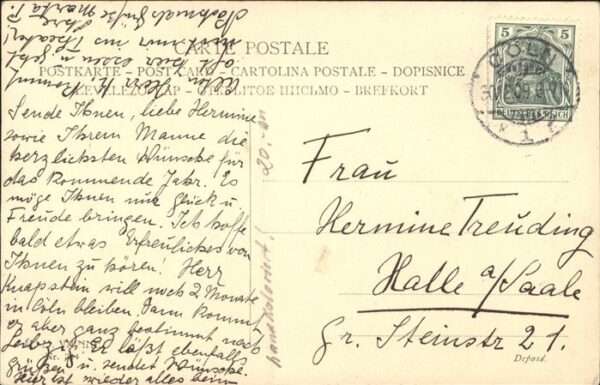 CARTE POSTALE
POSTKARTE - POST CARD - CARTOLINA POSTALE - DOPISNICE
BREFKORT
Sende Ihnen, liebe Hermine
sowie Ihrem Manne die
herzlichsten Wünsche für
das kommende Jahr. Es
möge Ihnen nur Glück u.
Freude bringen. Ich hoffe
bald etwas Erfreuliches von
Ihnen zu hören! Herr
Knapstein will noch 2 Monate
in Cöln bleiben. Dann kommt
er aber ganz bestimmt nach
Er läßt ebenfalls
grüßen u. sendet Wünsche.
ist wieder alles beim
5 5
DEUTSCHES REICH
CÖLN
1
Frau
Hermine Treuding
Halle a/Saale
Gr. Steinstr 21.
Deposé.
handkoloriert!
20.-